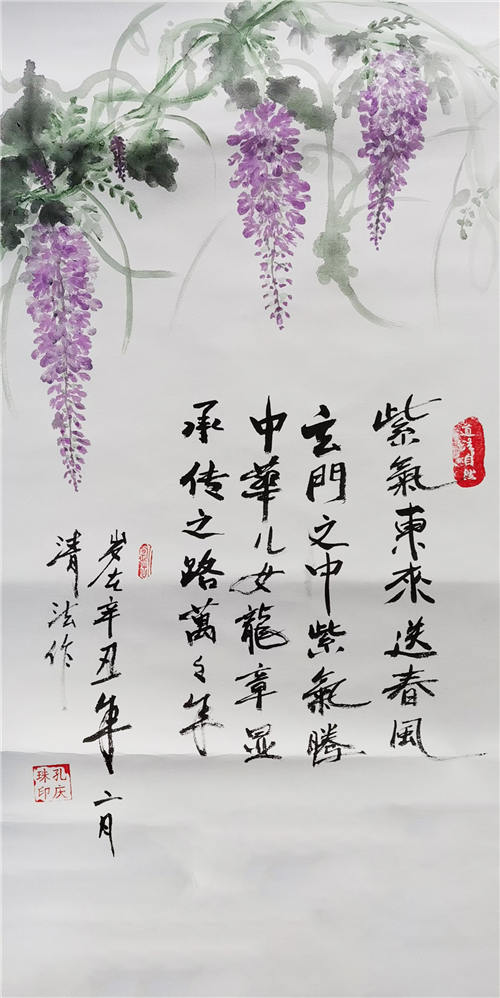 道法自然
紫氣東來送春風
玄門之中紫氣騰
中華儿女龍章显
承传之路萬々年
岁在辛丑年六月
清法作
孔庆
珠印